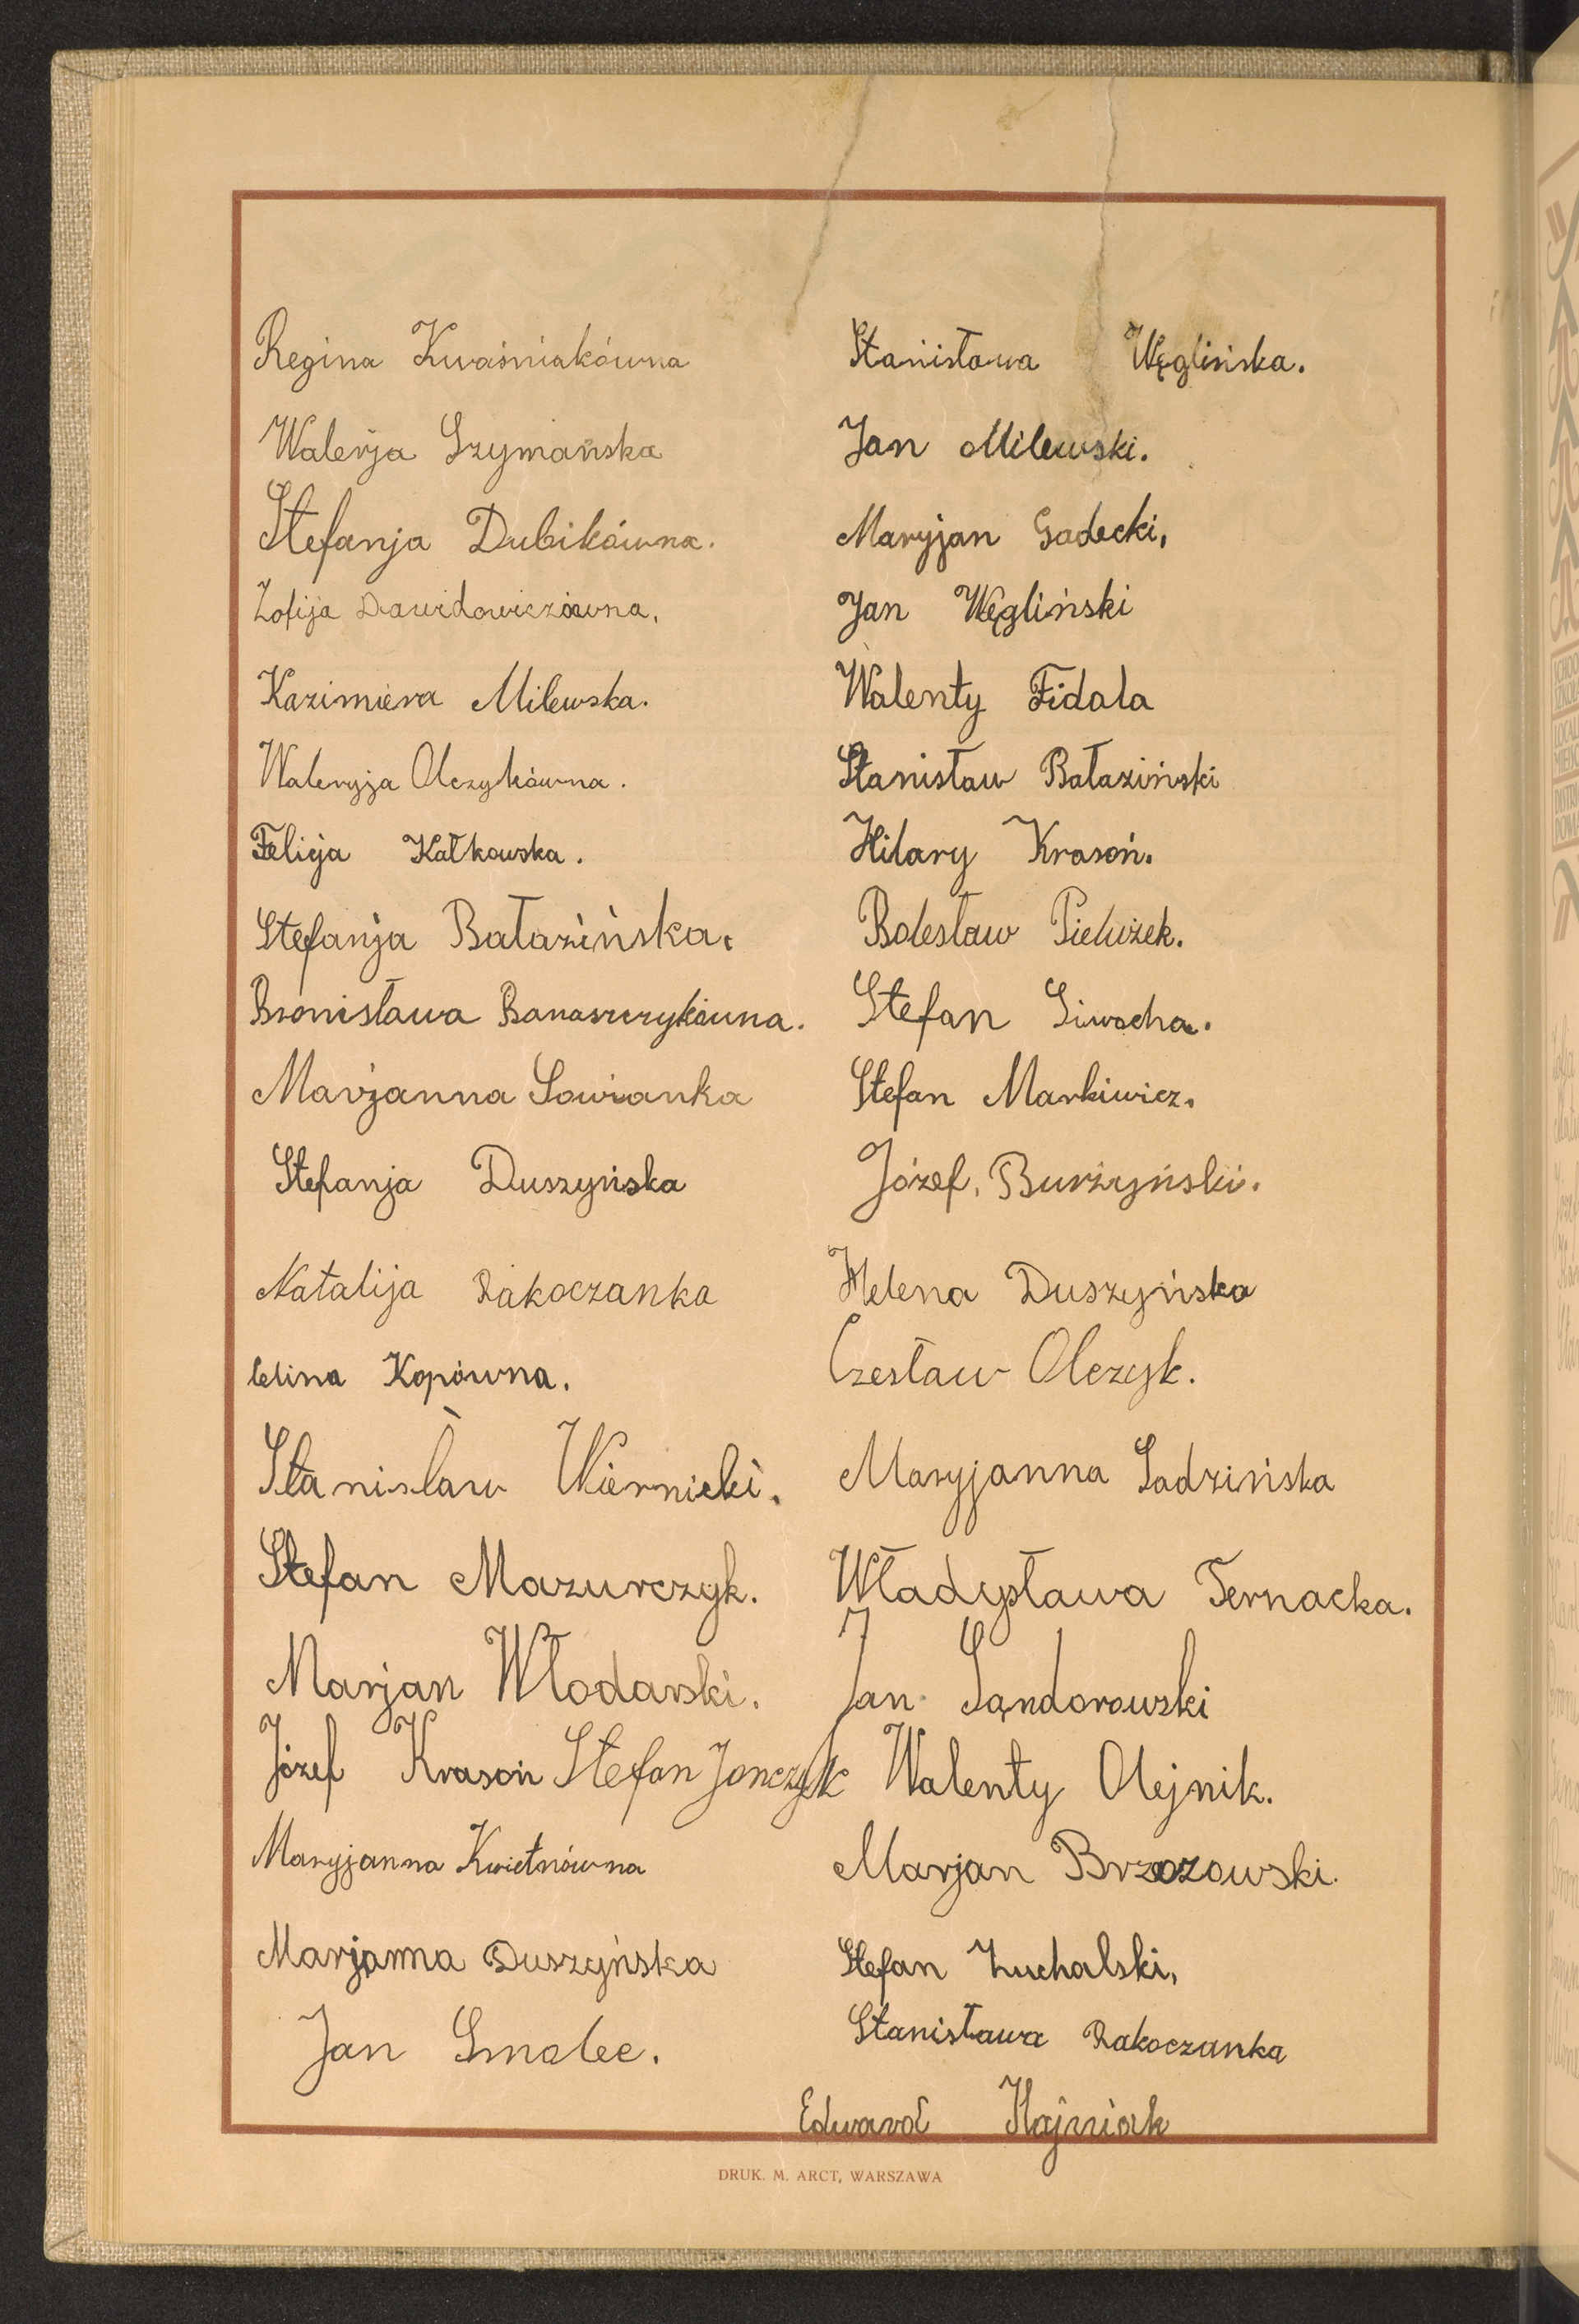 Regina Kwaśniakówna
Walerja Szymańska
Stefanja Dubikówna.
Zofija Dawidowiczówna.
Kazimiera Milewska.
Waleryja Olczykówna.
Felicja Kałkowska.
Stefanja Bałazińska.
Bronisława Banaszczykówna.
Marjanna Sowianka
Stefanja Duszyńska
Natalija Rakoczanka
Celina Kopówna.
Stanisław Wiernicki.
Stefan Mazurczyk.
Marjan Włodarski.
Józef Krasoń Stefan Janczyk
Maryjanna Kwietnówna
Marjanna Duszyńska
Jan Smolec.
Stanisława Węglińska.
Jan Milewski.
Maryjan Gadecki,
Jan Węgliński
Walenty Fidala
Stanisław Bałaziński
Hilary Krasoń.
Bolesław Pielużek.
Stefan Siwocha.
Stefan Markiwicz.
Józef. Burżyński.
Helena Duszyńska
Czesław Olczyk.
Maryjanna Sadzińska
Władysława Ternacka.
Jan Sandorowski
Walenty Olejnik.
Marjan Brzozowski.
Stefan Zuchalski,
Stanisława Rakoczanka
Edward
DRUK. M. ARCT, WARSZAWA